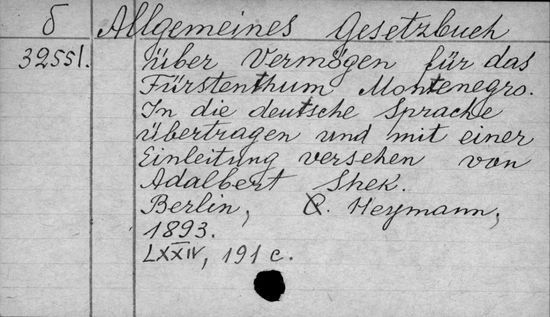 δ Allgemeines Gesetzbuch
32551. über Vermögen für das
Fürstenthum Montenegro.
In die deutsche Sprache
übertragen und mit einer
Einleitung versehen von
Adalbert Shek.
Berlin, C. Heymann,
1893.
LXXIV, 191 c.